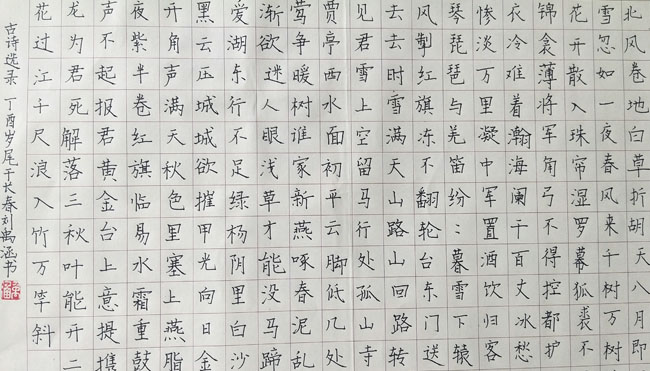 北风卷地白草折胡天八月即
雪忽如一夜春风来千树万树
花开散入珠帘湿罗幕狐裘不
锦衾薄将军角弓不得控都护
衣冷难着瀚海阑干百丈冰愁
惨淡万里凝中军置酒饮归客
琴琵琶与羌笛纷：暮雪下辕
风掣红旗冻不翻轮台东门送
去去时雪满天山路山回路转
见君雪上空留马行处孤山寺
贾亭西水面初平云脚低几处
莺争暖树谁家新燕啄春泥乱
渐欲迷人眼浅草才能没马蹄
爱湖东行不足绿杨阴里白沙
黑云压城城欲摧甲光向日金
开角声满天秋色里塞上燕脂
夜紫半卷红旗临易水霜重鼓
声不起报君黄金台上意提携
龙为君死解落三秋叶能开二
花过江千尺浪入竹万竿斜
古诗选录 丁酉岁尾于长春刘禹涵书